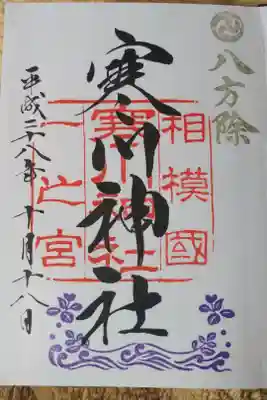 八方除
相模國
寒川神社
寒川神社
一之宮
平成二十八年十月十八日